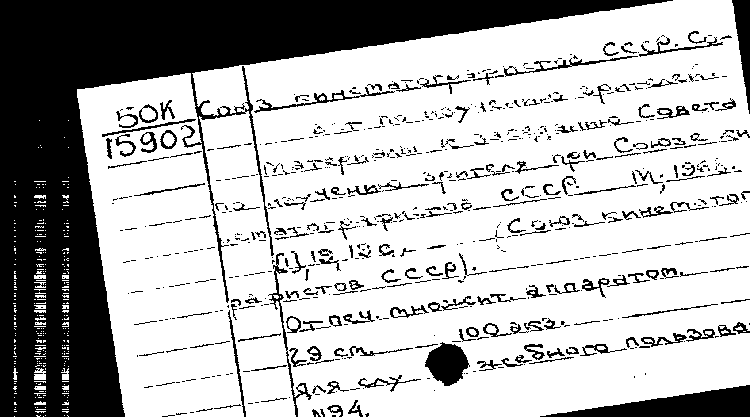 50К
15902
Союз кинематографистов СССР. Со-
вет по изучению зрителей.
Материалы к заседанию Совета
по изучению зрителя при Союзе ки
нематографистов СССР. М., 196
[1], 19, 19 с. — (Союз кинематог
рафистов СССР).
Отпеч. множит. аппаратом.
29 см. 100 экз.
Для слу жебного пользова
N94.